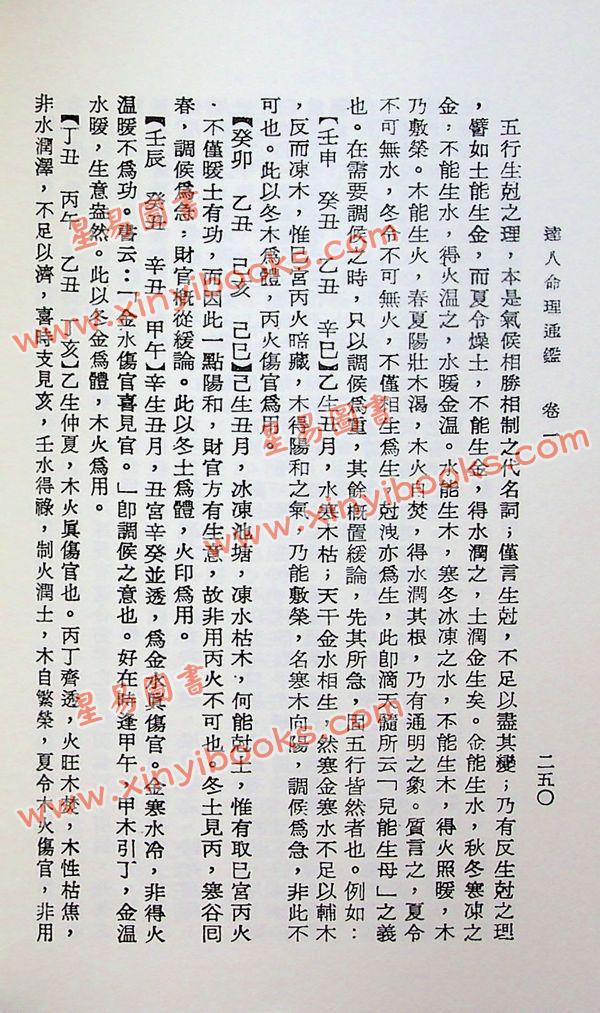 達人命理通鑑　卷一　二五〇
五行生尅之理，本是氣候相勝相制之代名詞；僅言生尅，不足以盡其變；乃有反生尅之理
，譬如土能生金，而夏令燥土，不能生金，得水潤之，土潤金生矣。金能生水，秋冬寒凍之
金，不能生水，得火溫之，水暖金溫。水能生木，寒冬冰凍之水，不能生木，得火照暖，木
乃敷榮。木能生火，春夏陽壯木渴，木火自焚，得水潤其根，乃有通明之象。質言之，夏令
不可無水，冬令不可無火，不僅相生爲生，尅洩亦爲生，此卽滴天髓所云「兒能生母」之義
也。在需要調候之時，只以調候爲重，其餘概置緩論，先其所急，固五行皆然者也。例如：
【壬申　癸丑　乙丑　辛巳】乙生丑月，水寒木枯；天干金水相生，然寒金寒水不足以輔木
，反而凍木，惟巳宮丙火暗藏，木得陽和之氣，乃能敷榮，名寒木向陽，調候爲急，非此不
可也。此以冬木爲體，丙火傷官爲用。
【癸卯　乙丑　己亥　己巳】己生丑月，冰凍池塘，凍水枯木，何能尅土，惟有取巳宮丙火
，不僅暖土有功，而因此一點陽和，財官方有生意，故非用丙火不可也。冬土見丙，寒谷囘
春，調候爲急，財官概從緩論。此以冬土爲體，火印爲用。
【壬辰　癸丑　辛丑　甲午】辛生丑月，丑宮辛癸並透，爲金水眞傷官。金寒水冷，非得火
溫暖不爲功。書云：「金水傷官喜見官。」卽調候之意也。好在時逢甲午，甲木引丁，金溫
水暖，生意盎然。此以冬金爲體，木火爲用。
【丁丑　丙午　乙丑　丁亥】乙生仲夏，木火眞傷官也。丙丁齊透，火旺木焚，木性枯焦，
非水潤澤，不足以濟，喜時支見亥，壬水得祿，制火潤土，木自繁榮，夏令木火傷官，非用
星易圖書
www.xinyibooks.com
星易圖書
www.xinyibooks.com
星易圖書
www.xinyibooks.com